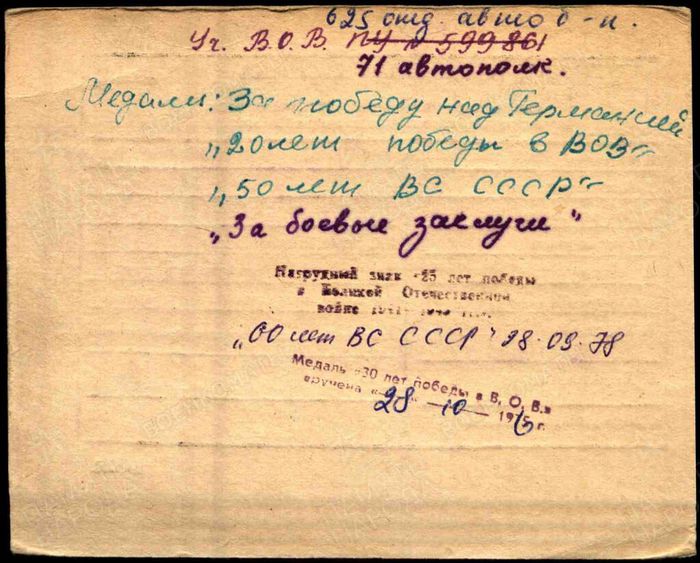 625 отд. авто б-н.
Уч. В.О.В. ПУ № 599861
71 автополк.
Медали: За победу над Германией
"20 лет победы в ВОВ"
"50 лет ВС СССР"
"За боевые заслуги"
Нагрудный знак «25 лет победы
в Великой Отечественной
войне
"60 лет ВС СССР" 28.09.78
Медаль «30 лет победы в В. О. В.»
вручена «28» 10 1975 г.